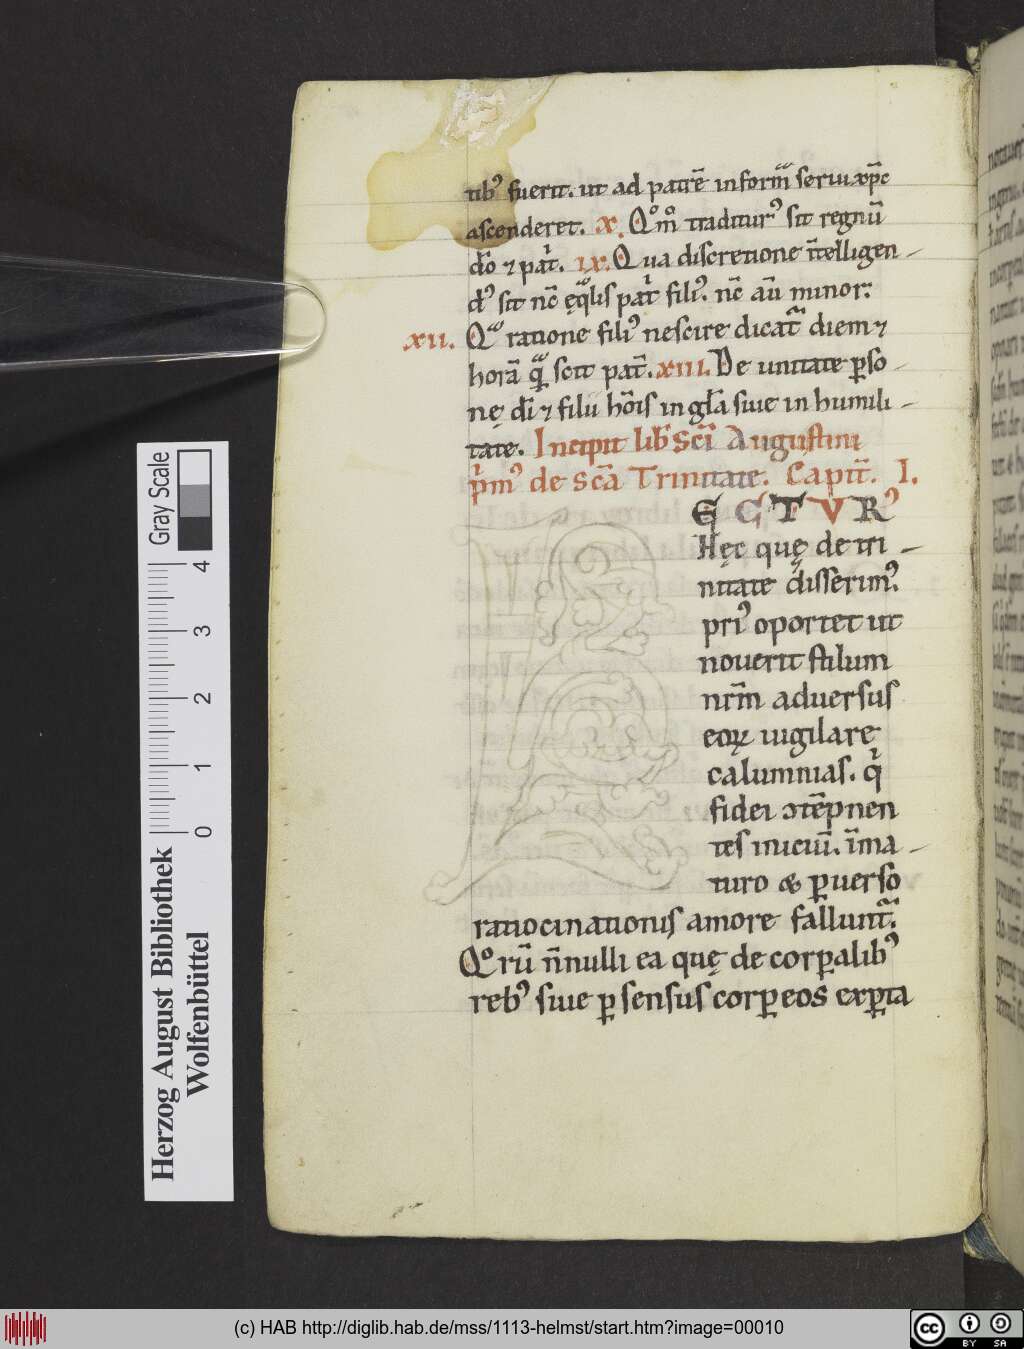 tib᾽ fuerit. ut ad patrē in formā serui xp̄c
ascenderet. X. Qͦmͦ traditur᾽ sit regnū
dō ⁊ pat̄. IX. Qua discretione īntelligen-
d᾽ sit nc̄ ęqͣlis pat̄ fili᾽. nc̄ aū minor.
XII. Qͣ ratione fili᾽ nescire dicat̄ diem ⁊
horā qͣ̄ scit pat̄. XIII. De unitate ꝑso-
nę dī ⁊ filii hōis in gl̄a siue in humili-
tate. Incipit lib᾽ Scī Augustini
p̍m᾽ de Scā Trinitate. Capit̄. I.
ECTVR᾽
Hęc quę de tri-
nitate dͣisserim᾽.
pri᾽ oportet ut
nouerit stilum
nr̄m aduersus
eoꝝ uigilare
calumnias. q̍
fidei ↄtēpnen
tes iniciū. īma-
turo & ꝑuerso
ratiocinationis amore fallunt̄.
Qͦrū n̄nulli ea quę de corꝑalib᾽
reb᾽ siue ꝑ sensus corꝑeos exꝑta
Herzog August Bibliothek
Wolfenbüttel
0 1 2 3 4
Gray Scale
(c) HAB http://diglib.hab.de/mss/1113-helmst/start.htm?image=00010
cc BY SA